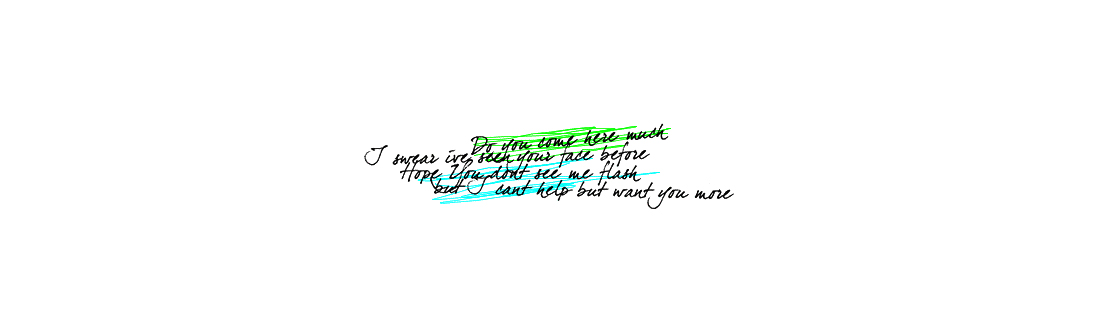 Do you come here much
I swear ive seen your face before
Hope You dont see me flash
but I cant help but want you more